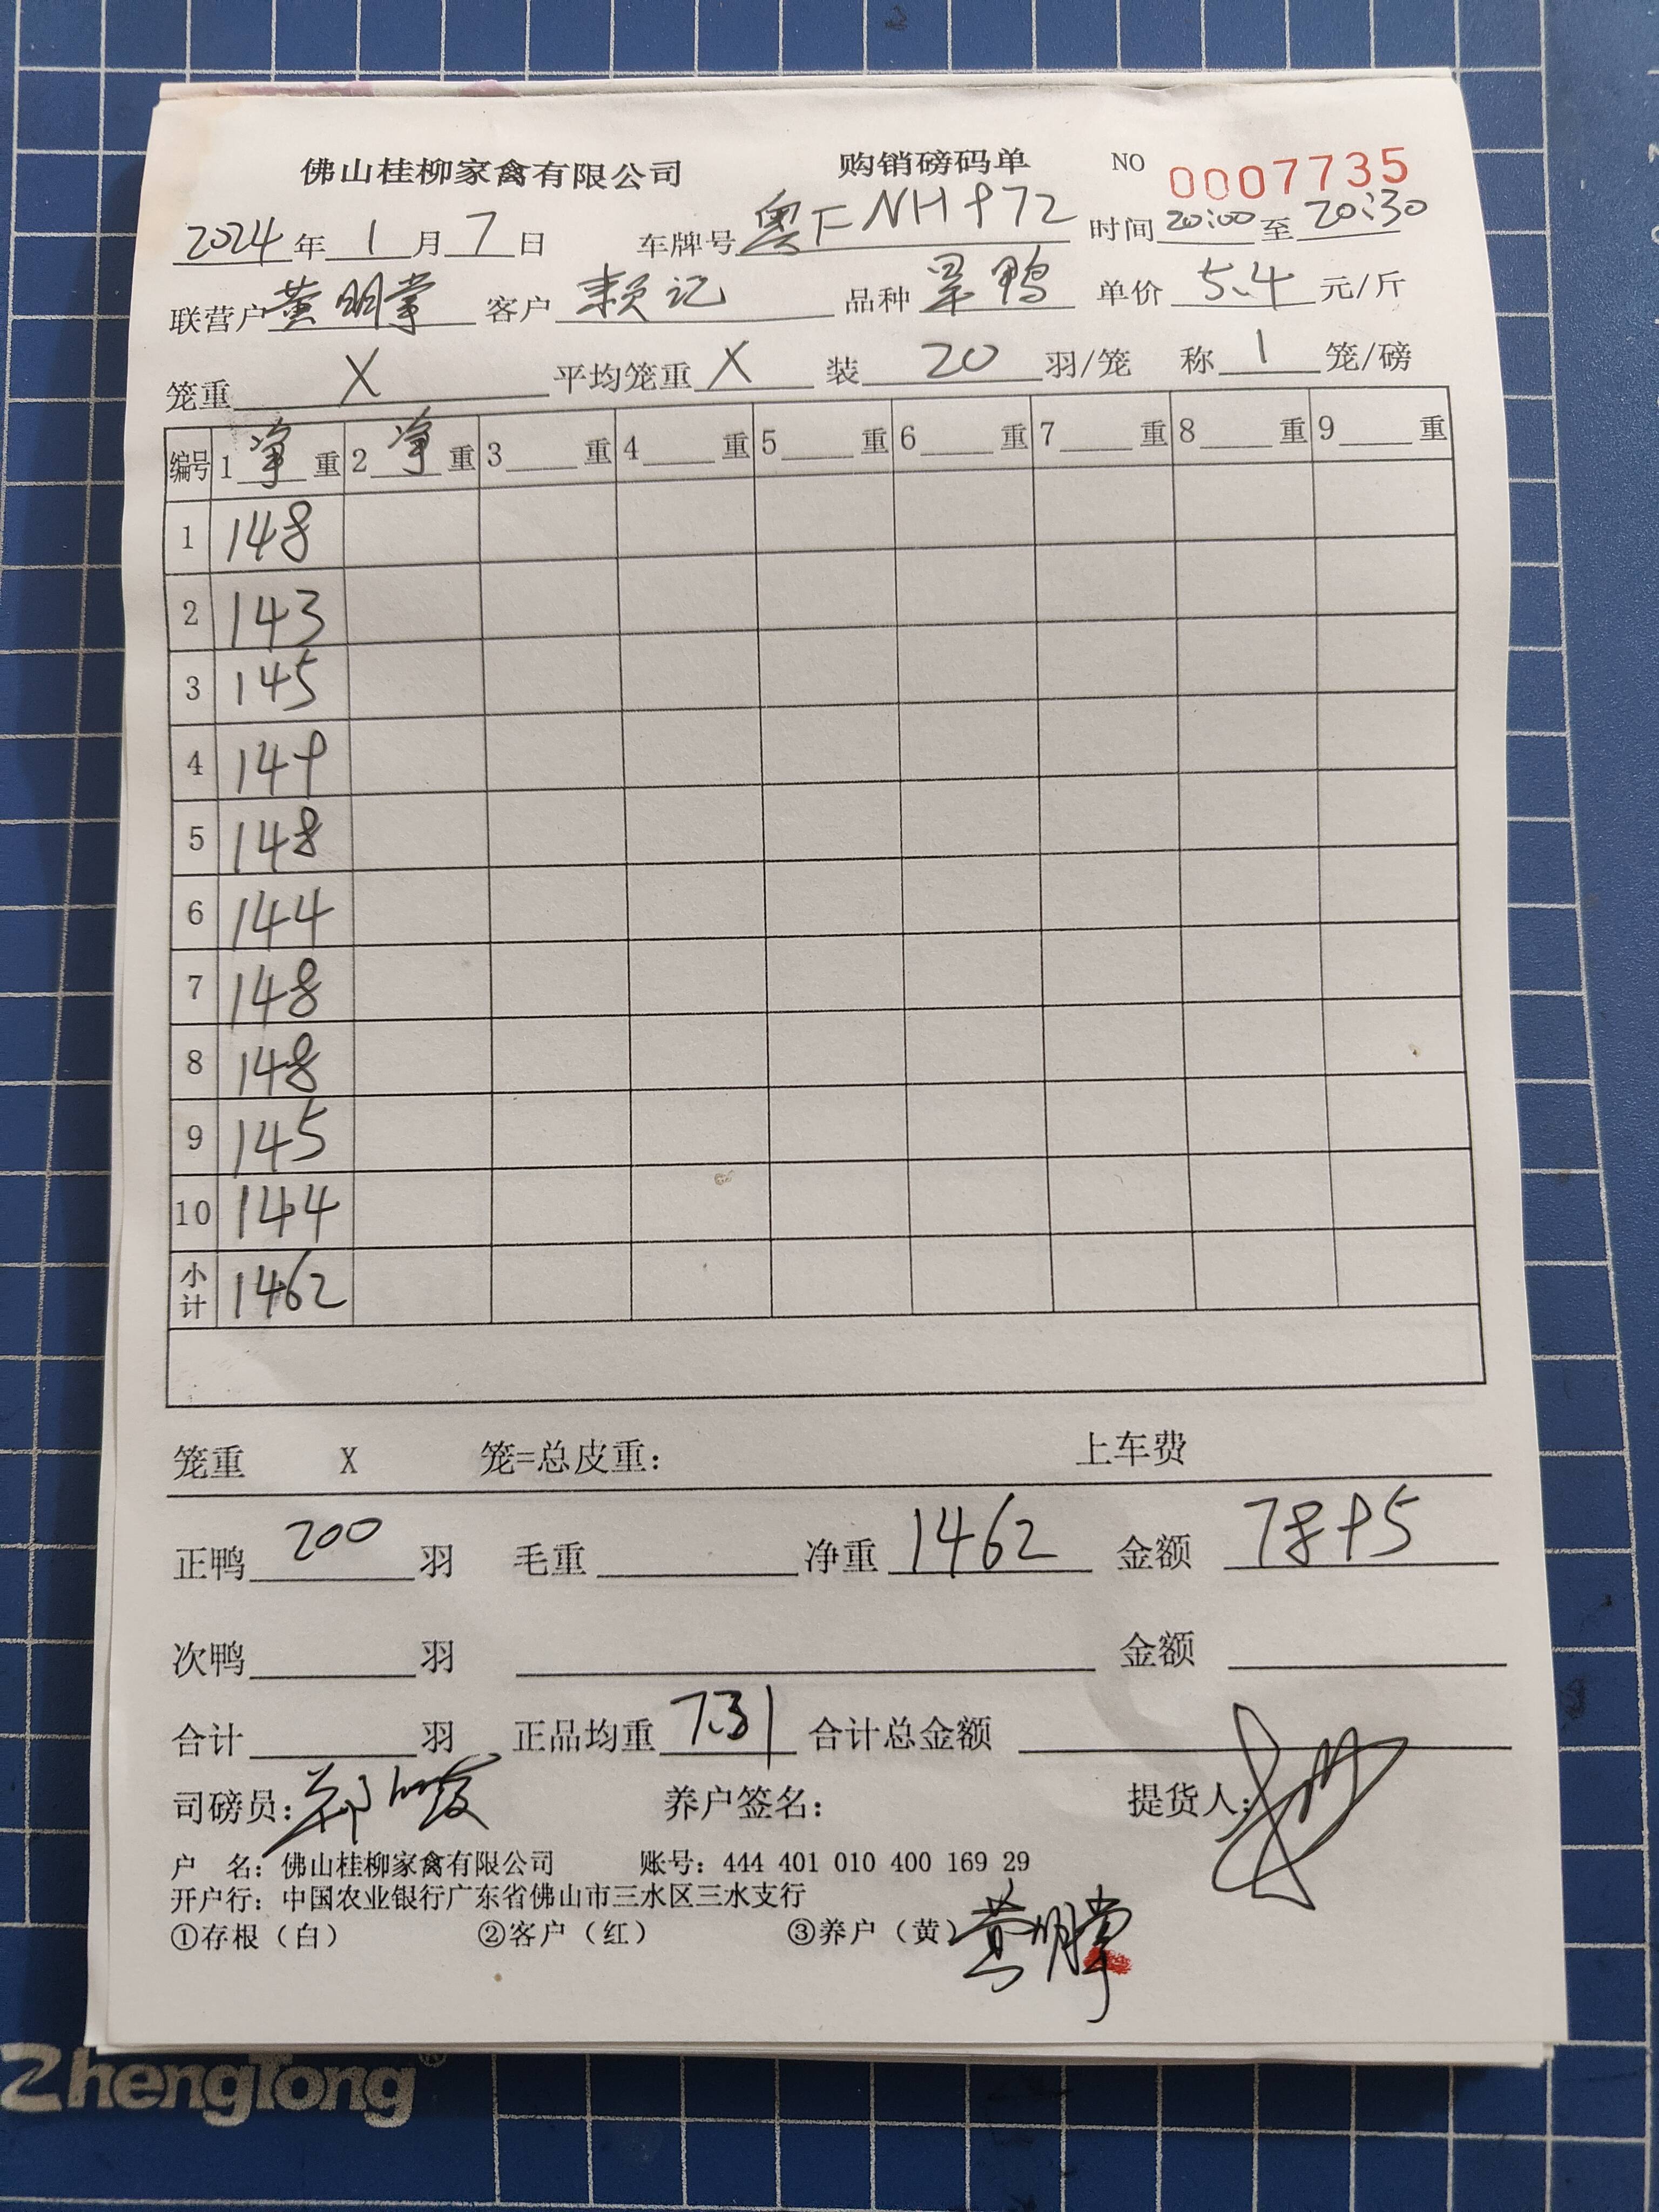 佛山桂柳家禽有限公司 购销磅码单 NO 0007735
2024年1月7日 车牌号粤F NH972 时间20:00至20:30
联营户黄明掌 客户赖记 品种 鸭 单价5.4元/斤
笼重X 平均笼重X 装20羽/笼 称1笼/磅
编号 1净重 2净重 3重 4重 5重 6重 7重 8重 9重
1 148
2 143
3 145
4 149
5 148
6 144
7 148
8 148
9 145
10 144
小计 1462
笼重 X 笼=总皮重: 上车费
正鸭200羽 毛重 净重1462 金额7895
次鸭 羽 金额
合计 羽 正品均重7.31 合计总金额
司磅员: 养户签名: 提货人:
户 名: 佛山桂柳家禽有限公司 账号: 444 401 010 400 169 29
开户行: 中国农业银行广东省佛山市三水区三水支行
①存根（白） ②客户（红） ③养户（黄） 黄明掌
ZhengTong®